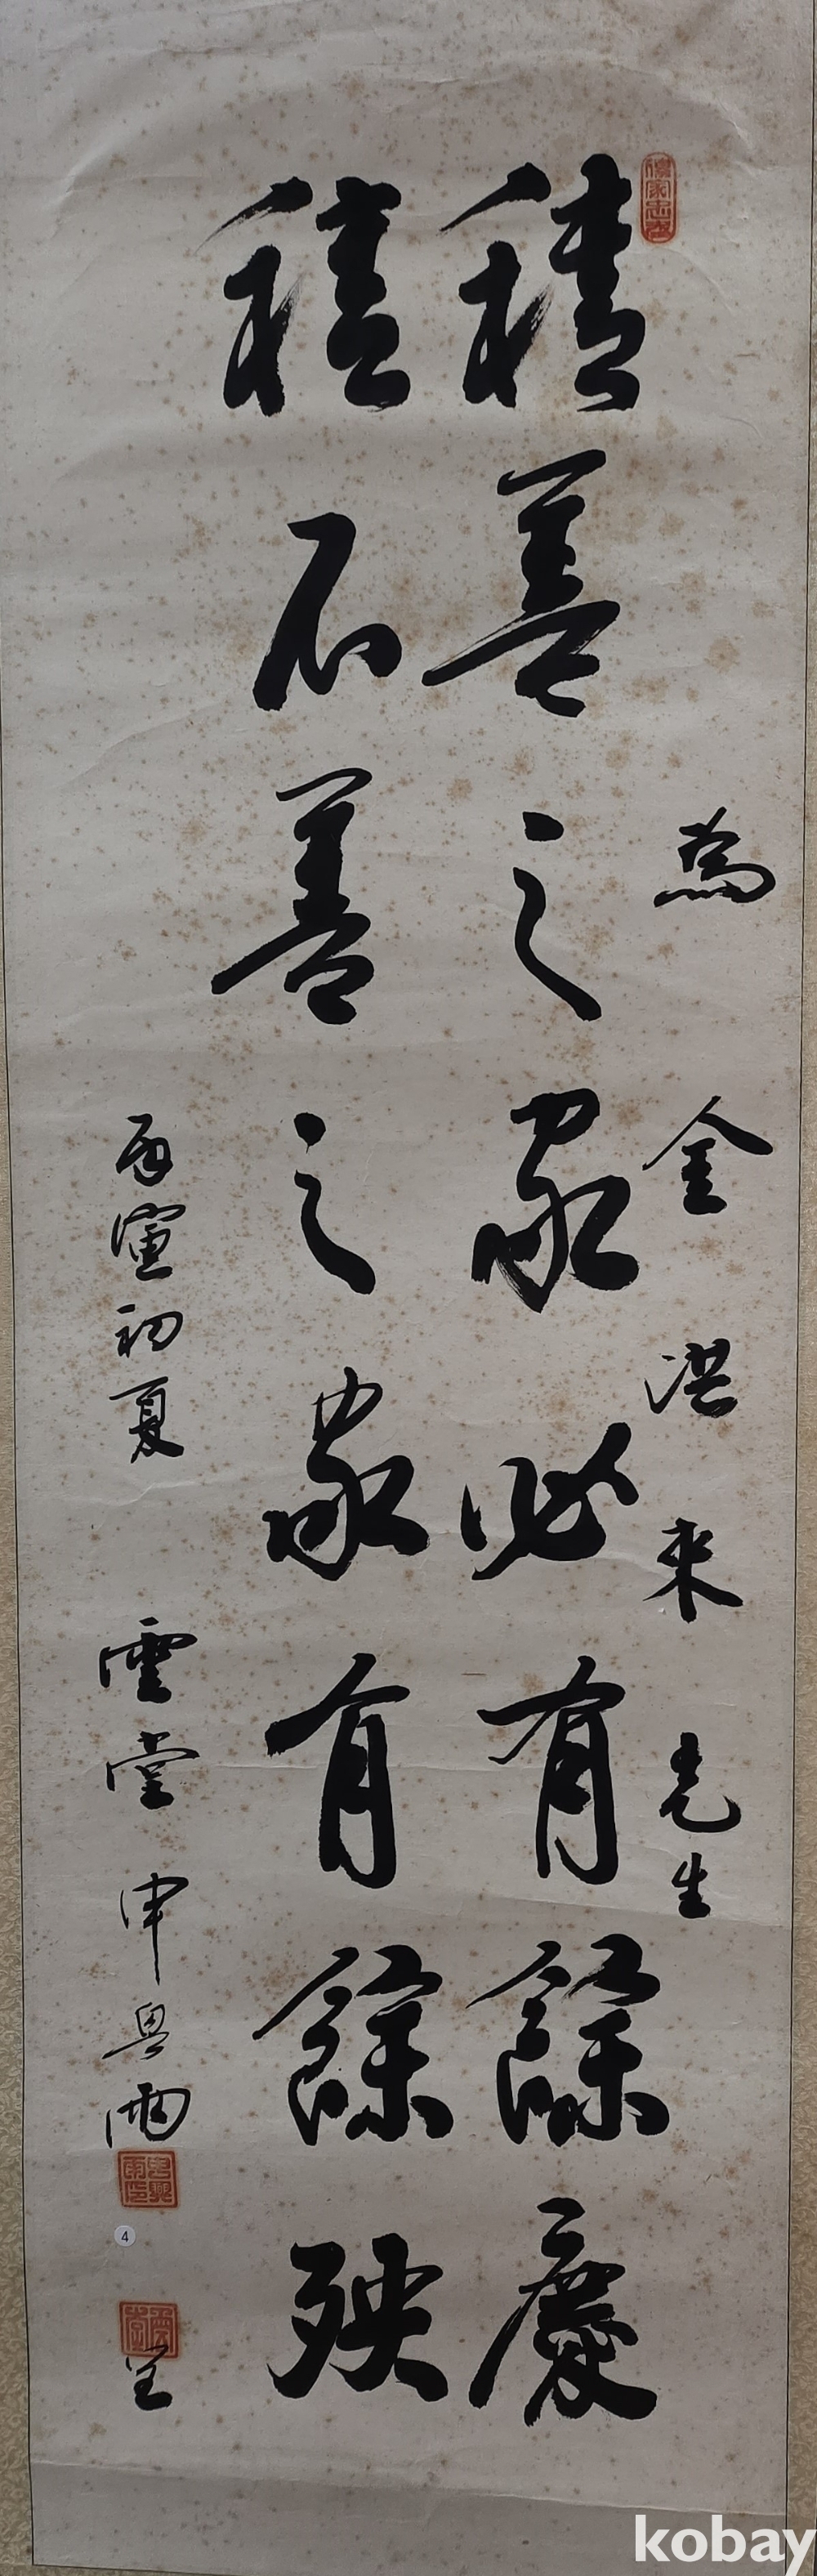 為 金洪來 先生
積善之家必有餘慶
積不善之家有餘殃
丙寅初夏 雲堂 申興雨
呈
4
kobay